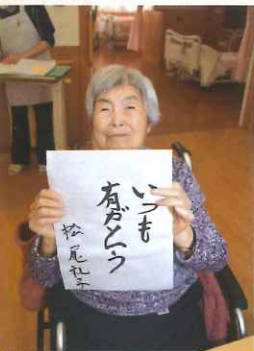 いつも
有がとう
松尾礼子